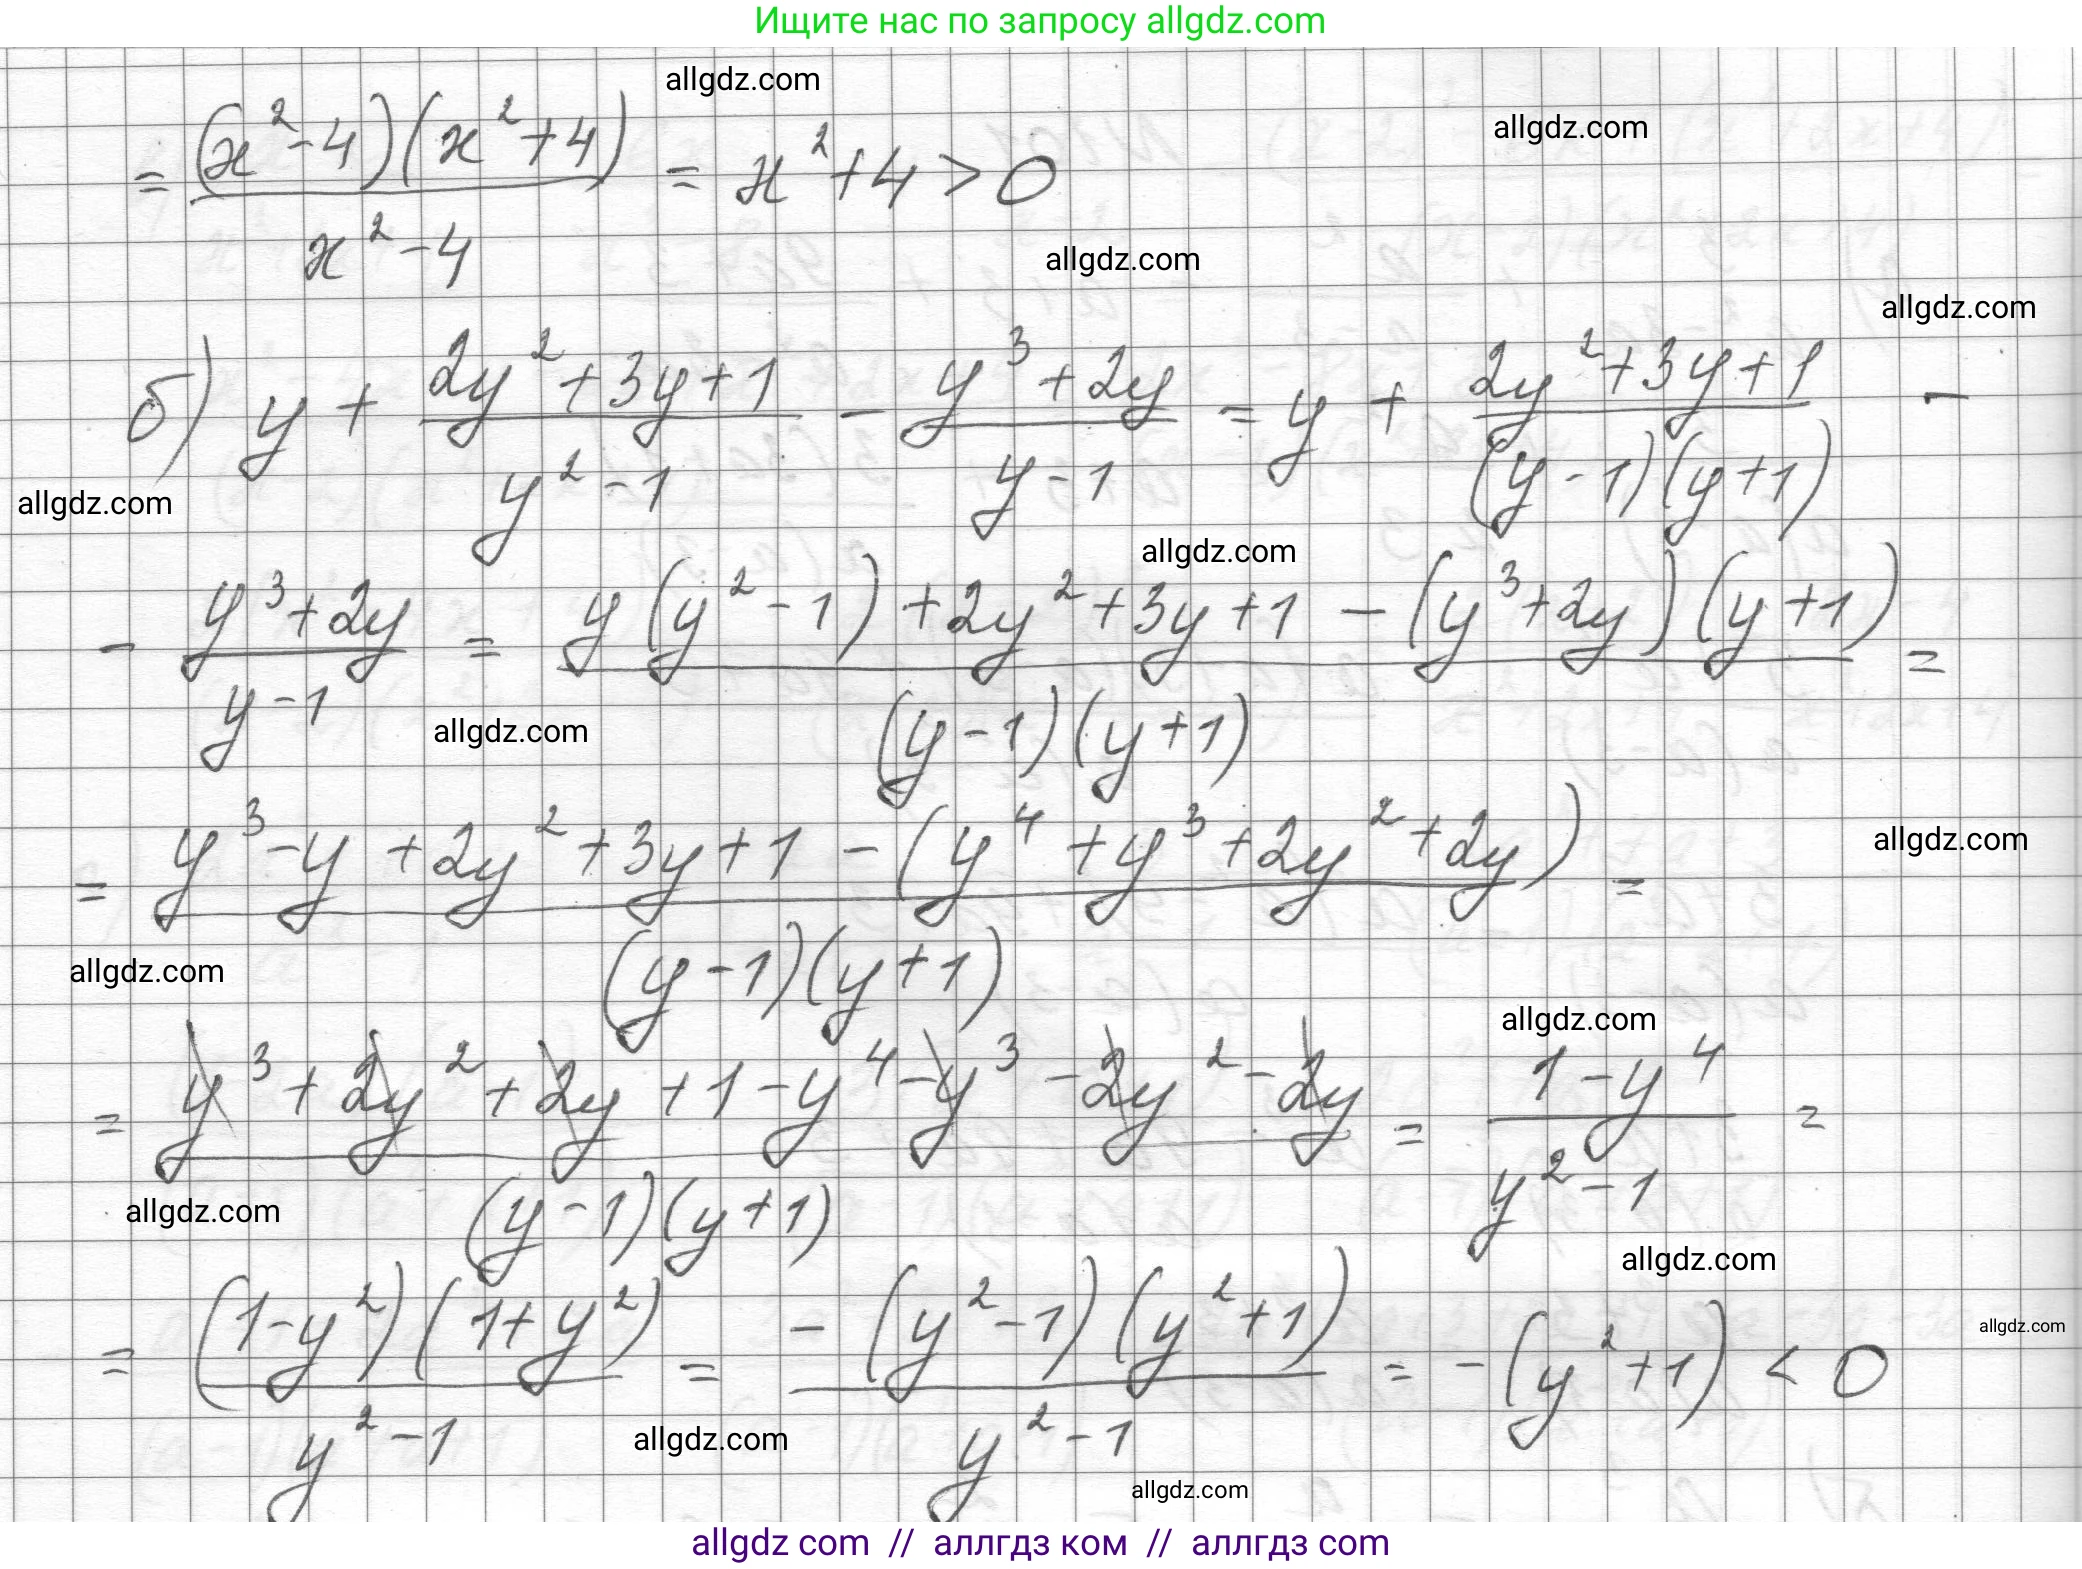 Ищите нас по запросу allgdz.com
allgdz.com
allgdz.com
= (x²-4)(x²+4) / x²-4 = x²+4 > 0
allgdz.com
allgdz.com
б) y + 2y²+3y+1 / y²-1 - y³+2y / y-1 = y + 2y²+3y+1 / (y-1)(y+1) -
allgdz.com
allgdz.com
- y³+2y / y-1 = y(y²-1)+2y²+3y+1-(y³+2y)(y+1) / (y-1)(y+1) =
allgdz.com
= y³-y+2y²+3y+1-(y⁴+y³+2y²+2y) / (y-1)(y+1) =
allgdz.com
allgdz.com
allgdz.com
= y³+2y²+2y+1-y⁴-y³-2y²-2y / (y-1)(y+1) = 1-y⁴ / y²-1 =
allgdz.com
allgdz.com
= (1-y²)(1+y²) / y²-1 = -(y²-1)(y²+1) / y²-1 = -(y²+1) < 0
allgdz.com
allgdz.com
allgdz.com
allgdz com // аллгдз ком // аллгдз com